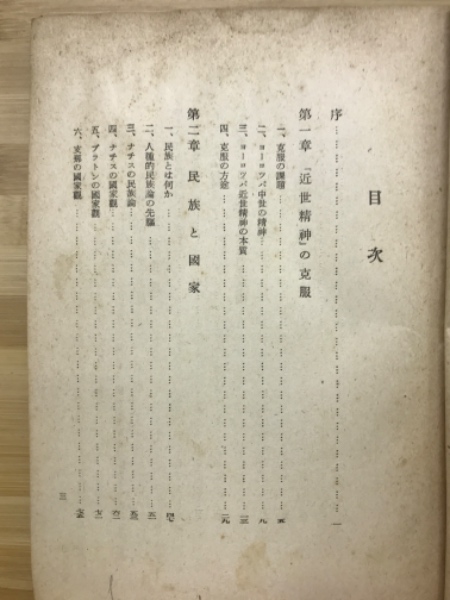 目次
序……………………………一
第一章 「近世精神」の克服
一、克服の課題……………………………五
二、ヨーロツパ中世の精神……………………………九
三、ヨーロツパ近世精神の本質……………………………一三
四、克服の方途……………………………二九
第二章 民族と國家
一、民族とは何か……………………………四〇
二、人種的民族論の先驅……………………………五一
三、ナチスの民族論……………………………五三
四、ナチスの國家觀……………………………六一
五、プラトンの國家觀……………………………七一
六、支那の國家觀……………………………七三
三